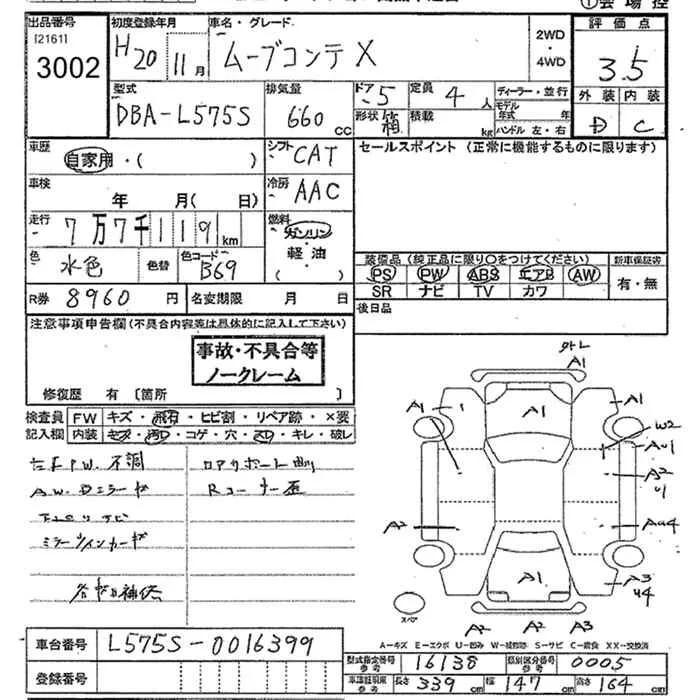 出品番号 [2161] 3002
初度登録年月 H20 11月
車名・グレード ムーブコンテ X
2WD・4WD
評価点 3.5
外装 D 内装 C
型式 DBA-L575S
排気量 660 CC
ドア 5 定員 4 人
形状 箱 積載 kg
ディーラー・並行
モデル年式 年
ハンドル 左・右
車歴 自家用・( )
シフト CAT
セールスポイント (正常に機能するものに限ります)
車検 年 月( 日)
冷房 AAC
走行 7万7千119km
燃料 ガソリン 軽油 ( )
色 水色 色替 色コード B69
装備品(純正品に限り○をつけてください) 新車保証書
PS PW ABS エアB AW
SR ナビ TV カワ
有・無
R券 8960 円 名変期限 月 日
後日品
注意事項申告欄(不具合内容等は具体的に記入して下さい)
事故・不具合等
ノークレーム
修復歴 有 〔箇所 〕
検査員 FW キズ・飛石・ヒビ割・リペア跡・×要
記入欄 内装 キズ・汚れ・コゲ・穴・スレ・キレ・破レ
左F PW.不調
ロアサポート曲り
Rコーナー歪
ミラーウインカーヤ
外し
A1
A1
A1
A1
A1
W2
AU1
A2
A2
U1
AU4
A1
A3
U4
A2 A2 A3
スペア
A-キズ E-エクボ U-凹み W-補修跡 S-サビ C-腐食 XX-交換済
車台番号 L575S-0016399
登録番号
型式指定番号 参考 16138 類別区分番号 参考 0005
車検証記載 参考 長さ 339 cm 幅 147 cm 高さ 164 cm